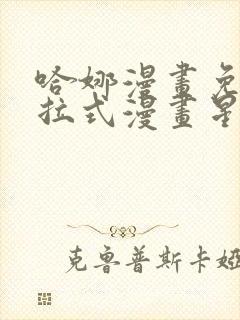 哈娜漫畫免
拉式漫畫星
克魯普斯卡婭